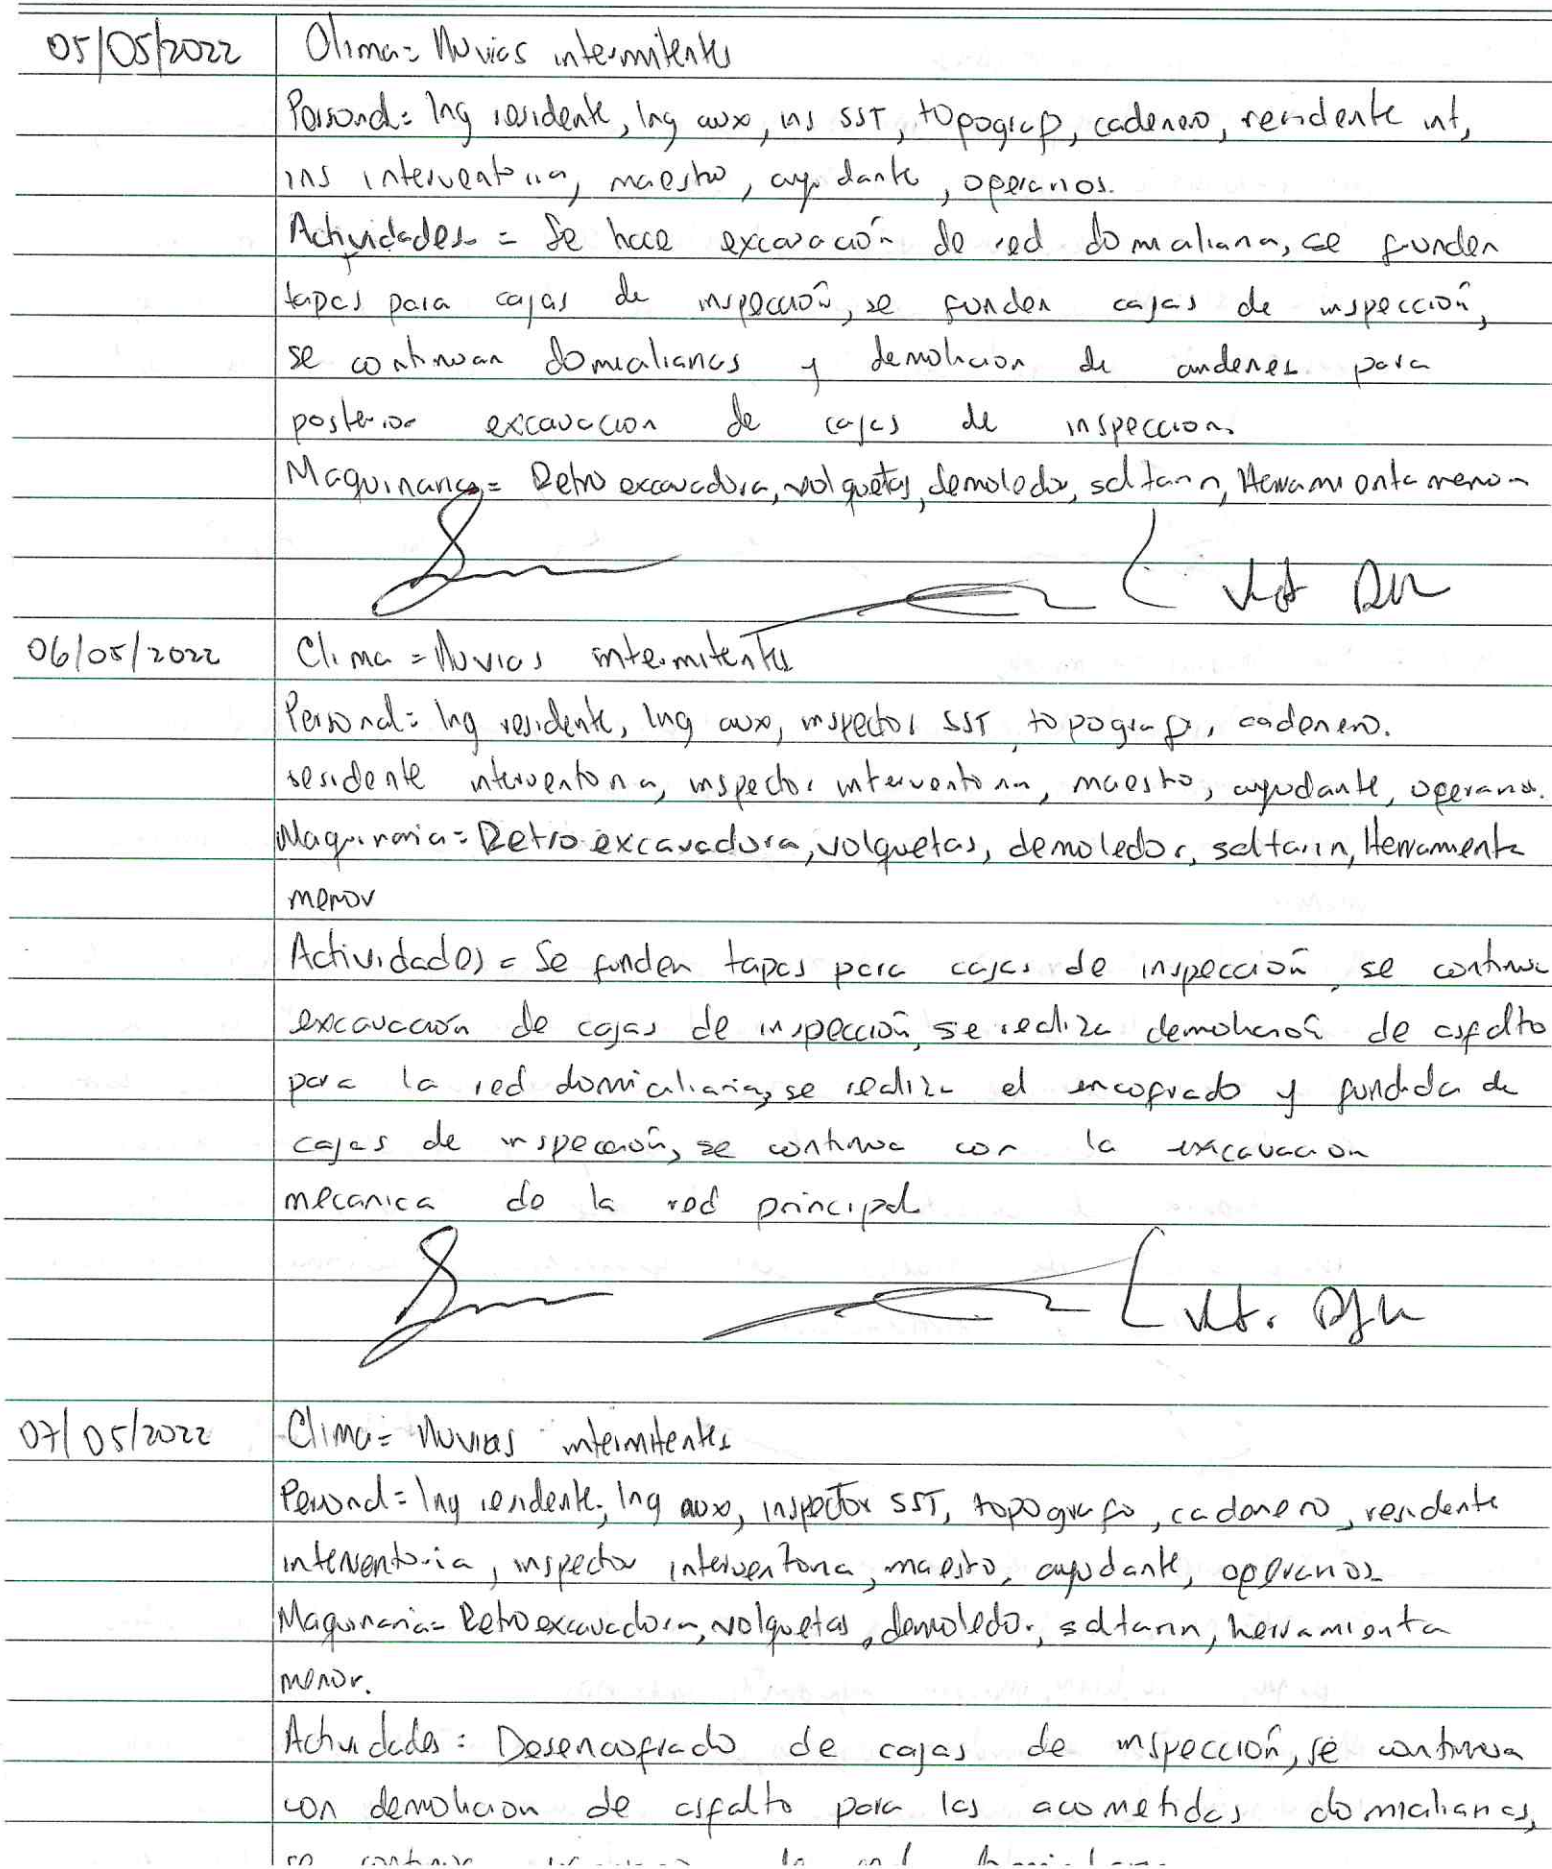 05/05/2022 Clima = lluvias intermitentes
Personal = Ing residente, Ing aux, ins SST, topograf, cadenero, residente int,
ins interventoria, maestro, ayudante, operarios.
Actividades = Se hace excavación de red domiciliaria, se funden
tapas para cajas de inspección, se funden cajas de inspección,
se continuan domiciliarias y demolicion de andenes para
posterior excavacion de cajas de inspeccion.
Maquinaria = Retro excavadora, volquetas, demoledor, saltarin, Herramienta menor
06/05/2022 Clima = lluvias intermitentes
Personal = Ing residente, Ing aux, inspector SST, topografo, cadenero.
residente interventoria, inspector interventoria, maestro, ayudante, operarios.
Maquinaria = Retro excavadora, volquetas, demoledor, saltarin, Herramienta
menor
Actividades = Se funden tapas para cajas de inspección, se continua
excavación de cajas de inspección, se realiza demolición de asfalto
para la red domiciliaria, se realiza el encofrado y fundida de
cajas de inspección, se continua con la excavacion
mecanica de la red principal
07/05/2022 Clima = lluvias intermitentes
Personal = Ing residente, Ing aux, inspector SST, topografo, cadenero, residente
interventoria, inspector interventoria, maestro, ayudante, operarios
Maquinaria = Retroexcavadora, volquetas, demoledor, saltarin, herramienta
menor.
Actividades : Desencofrado de cajas de inspección, se continua
con demolicion de asfalto para las acometidas domiciliarias,